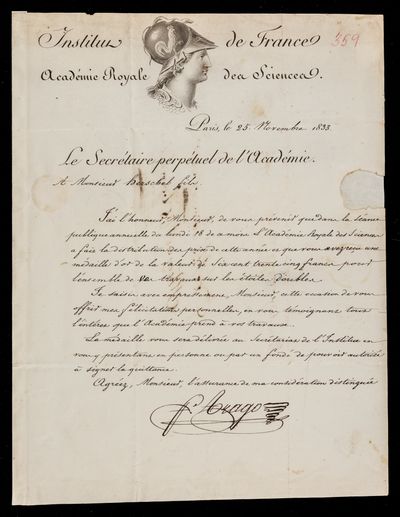 Institut de France
359
Académie Royale des Sciences.
Paris, le 25 Novembre 1833.
Le Secrétaire perpétuel de l'Académie.
A Monsieur Herschel fils.
J'ai l'honneur, Monsieur, de vous prévenir que dans la séance
publique annuelle du lundi 18 de ce mois l'Académie Royale des Sciences
a fait la distribution des prix de cette année et que vous avez reçu une
médaille d'or de la valeur de Six cent trente cinq francs pour
l'ensemble de vos travaux sur les étoiles doubles.
Je saisis avec empressement, Monsieur, cette occasion de vous
offrir mes félicitations personnelles, en vous témoignant tout
l'intérêt que l'Académie prend à vos travaux.
La médaille vous sera délivrée au Secrétariat de l'Institut en
vous y présentant en personne ou par un fondé de pouvoir autorisé
à signer la quittance.
Agréez, Monsieur, l'assurance de ma considération distinguée
F. Arago